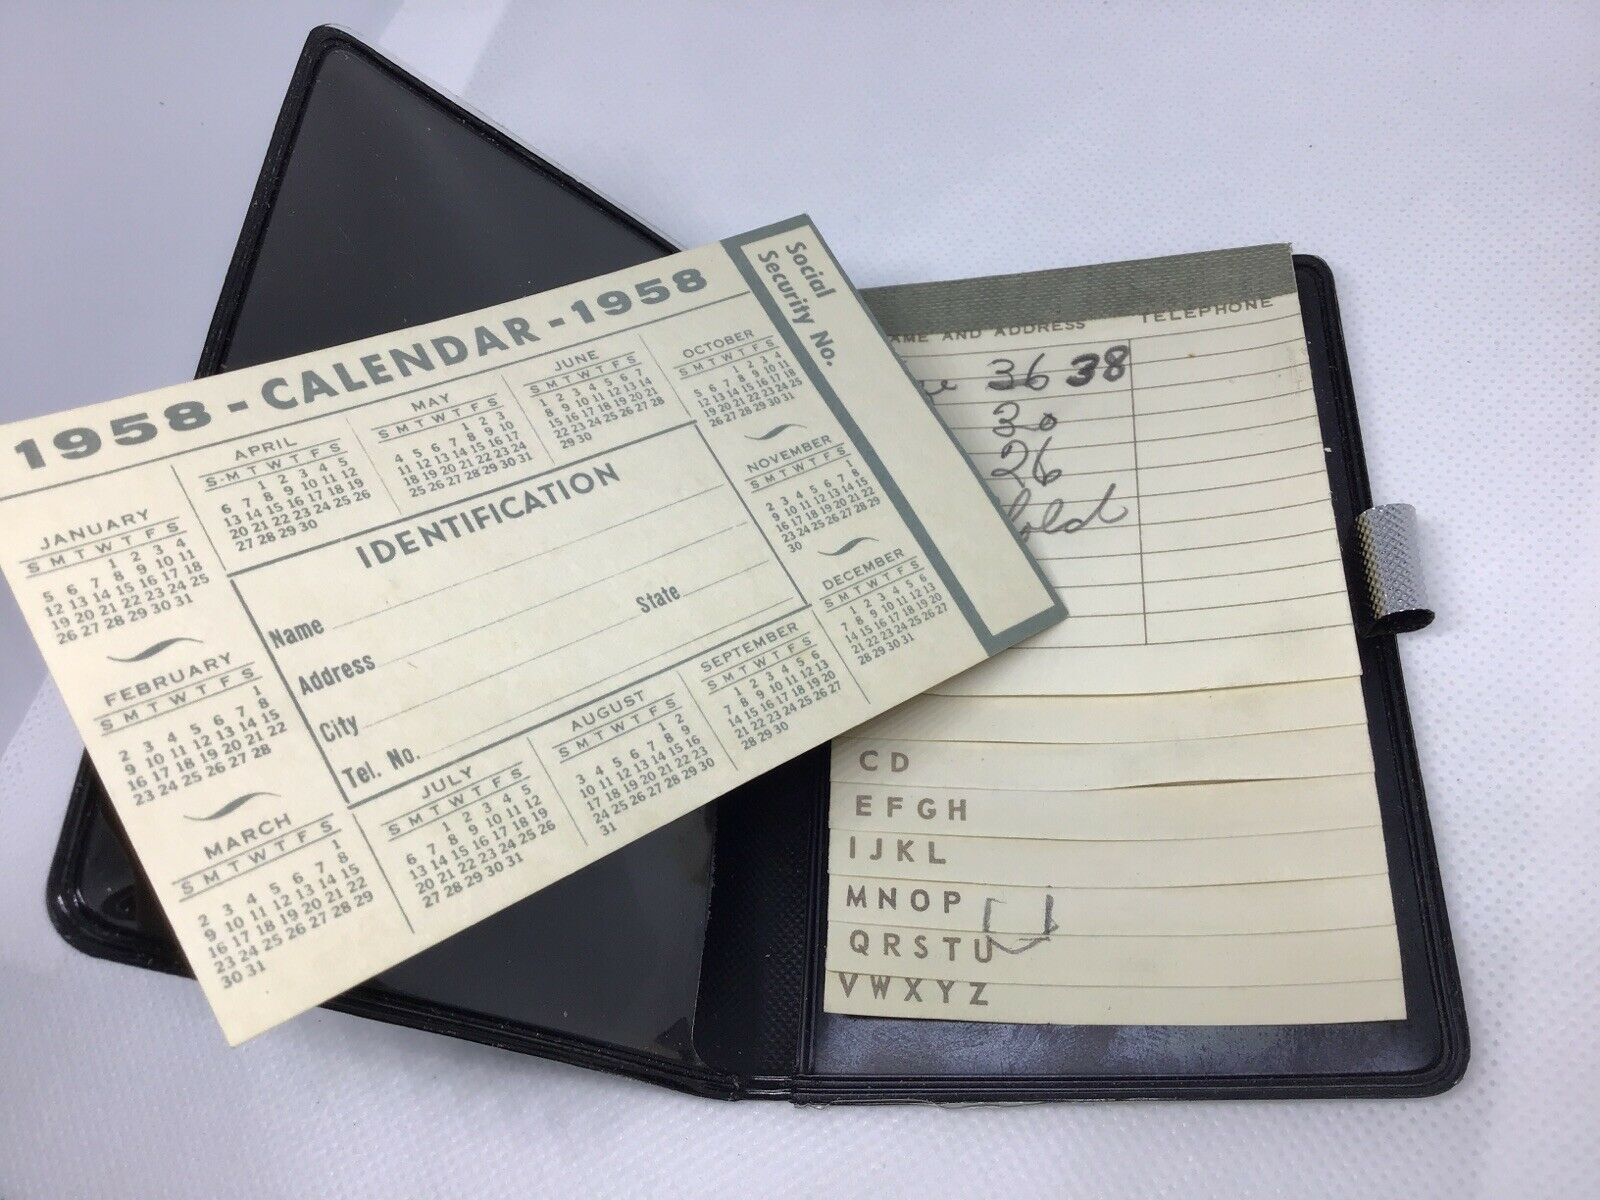 1958 - CALENDAR - 1958
Social
Security No.
JANUARY
S M T W T F S
1 2 3 4
5 6 7 8 9 10 11
12 13 14 15 16 17 18
19 20 21 22 23 24 25
26 27 28 29 30 31
FEBRUARY
S M T W T F S
1
2 3 4 5 6 7 8
9 10 11 12 13 14 15
16 17 18 19 20 21 22
23 24 25 26 27 28
MARCH
S M T W T F S
1
2 3 4 5 6 7 8
9 10 11 12 13 14 15
16 17 18 19 20 21 22
23 24 25 26 27 28 29
30 31
APRIL
S M T W T F S
1 2 3 4 5
6 7 8 9 10 11 12
13 14 15 16 17 18 19
20 21 22 23 24 25 26
27 28 29 30
MAY
S M T W T F S
1 2 3
4 5 6 7 8 9 10
11 12 13 14 15 16 17
18 19 20 21 22 23 24
25 26 27 28 29 30 31
JUNE
S M T W T F S
1 2 3 4 5 6 7
8 9 10 11 12 13 14
15 16 17 18 19 20 21
22 23 24 25 26 27 28
29 30
IDENTIFICATION
Name
Address
State
City
Tel. No.
JULY
S M T W T F S
1 2 3 4 5
6 7 8 9 10 11 12
13 14 15 16 17 18 19
20 21 22 23 24 25 26
27 28 29 30 31
AUGUST
S M T W T F S
1 2
3 4 5 6 7 8 9
10 11 12 13 14 15 16
17 18 19 20 21 22 23
24 25 26 27 28 29 30
31
SEPTEMBER
S M T W T F S
1 2 3 4 5 6
7 8 9 10 11 12 13
14 15 16 17 18 19 20
21 22 23 24 25 26 27
28 29 30
OCTOBER
S M T W T F S
1 2 3 4
5 6 7 8 9 10 11
12 13 14 15 16 17 18
19 20 21 22 23 24 25
26 27 28 29 30 31
NOVEMBER
S M T W T F S
1
2 3 4 5 6 7 8
9 10 11 12 13 14 15
16 17 18 19 20 21 22
23 24 25 26 27 28 29
30
DECEMBER
S M T W T F S
1 2 3 4 5 6
7 8 9 10 11 12 13
14 15 16 17 18 19 20
21 22 23 24 25 26 27
28 29 30 31
AME AND ADDRESS TELEPHONE
36 38
20
26
C D
E F G H
I J K L
M N O P
Q R S T U
V W X Y Z